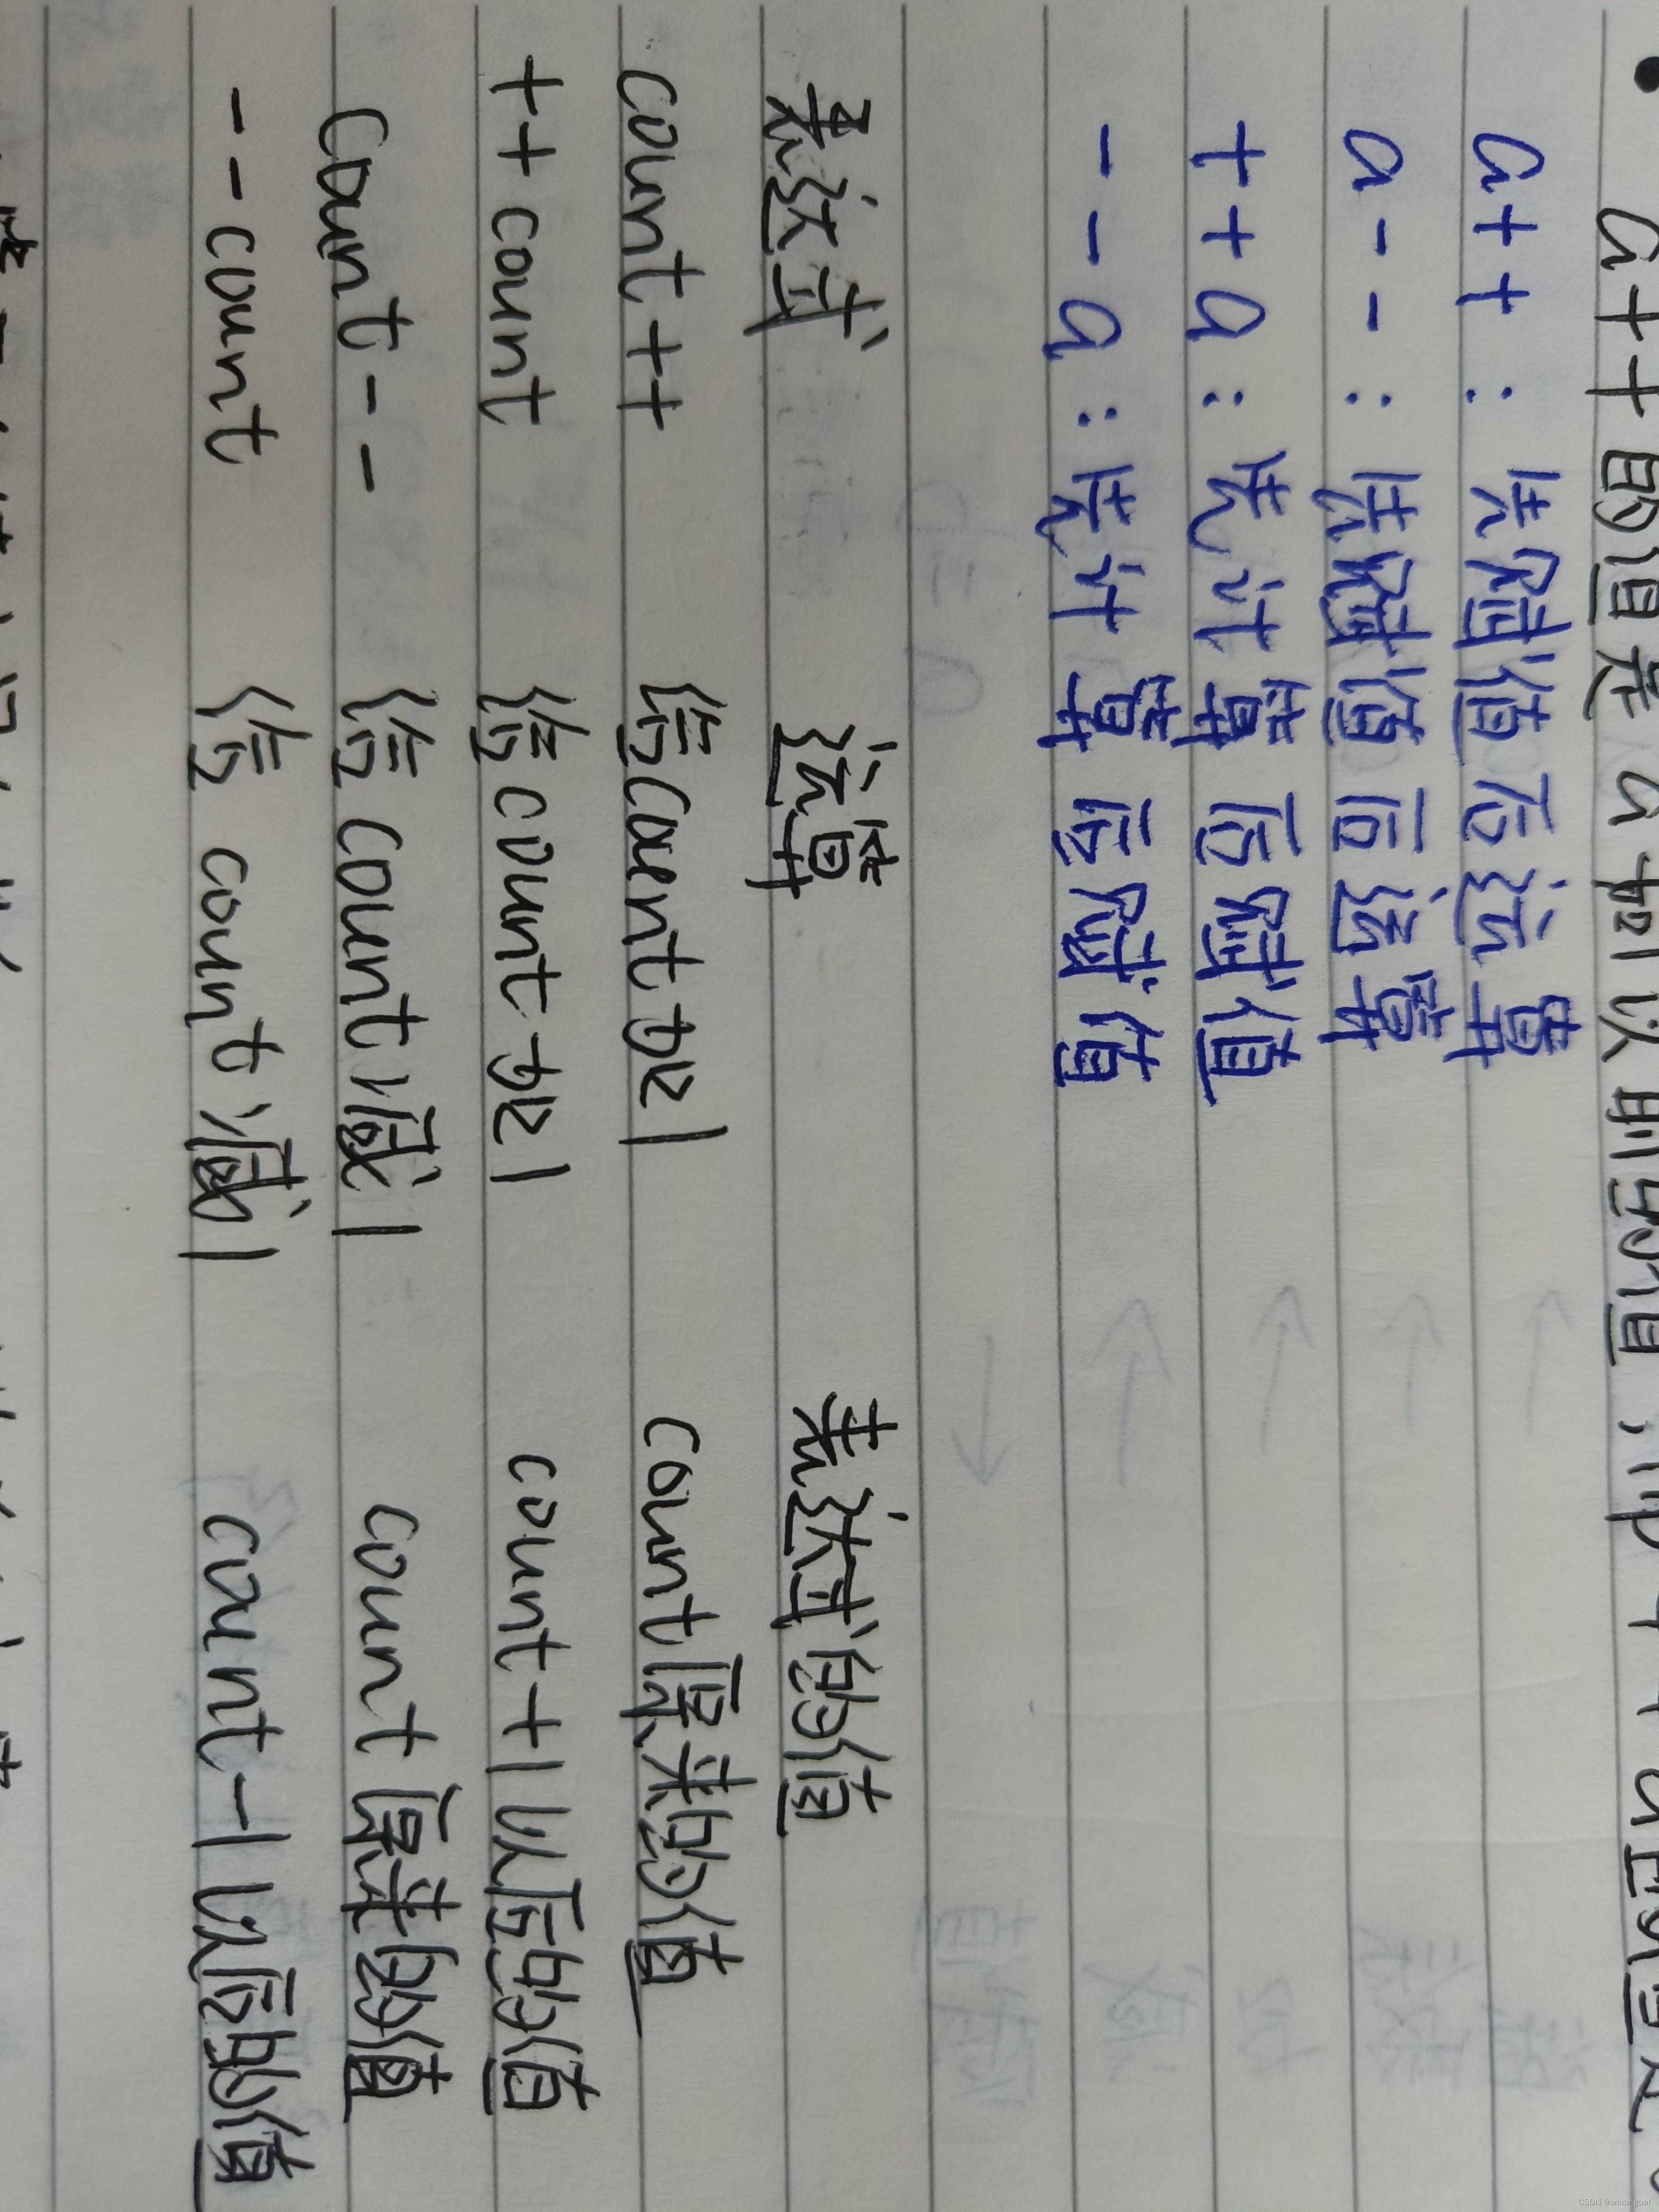 • a++的值是a加以前的值，而++a的值是
a++：先赋值后运算
a--：先赋值后运算
++a：先计算后赋值
--a：先计算后赋值
表达式 运算 表达式的值
count++ 给count加1 count原来的值
++count 给count加1 count+1以后的值
count-- 给count减1 count原来的值
--count 给count减1 count-1以后的值
CSDN @white goat